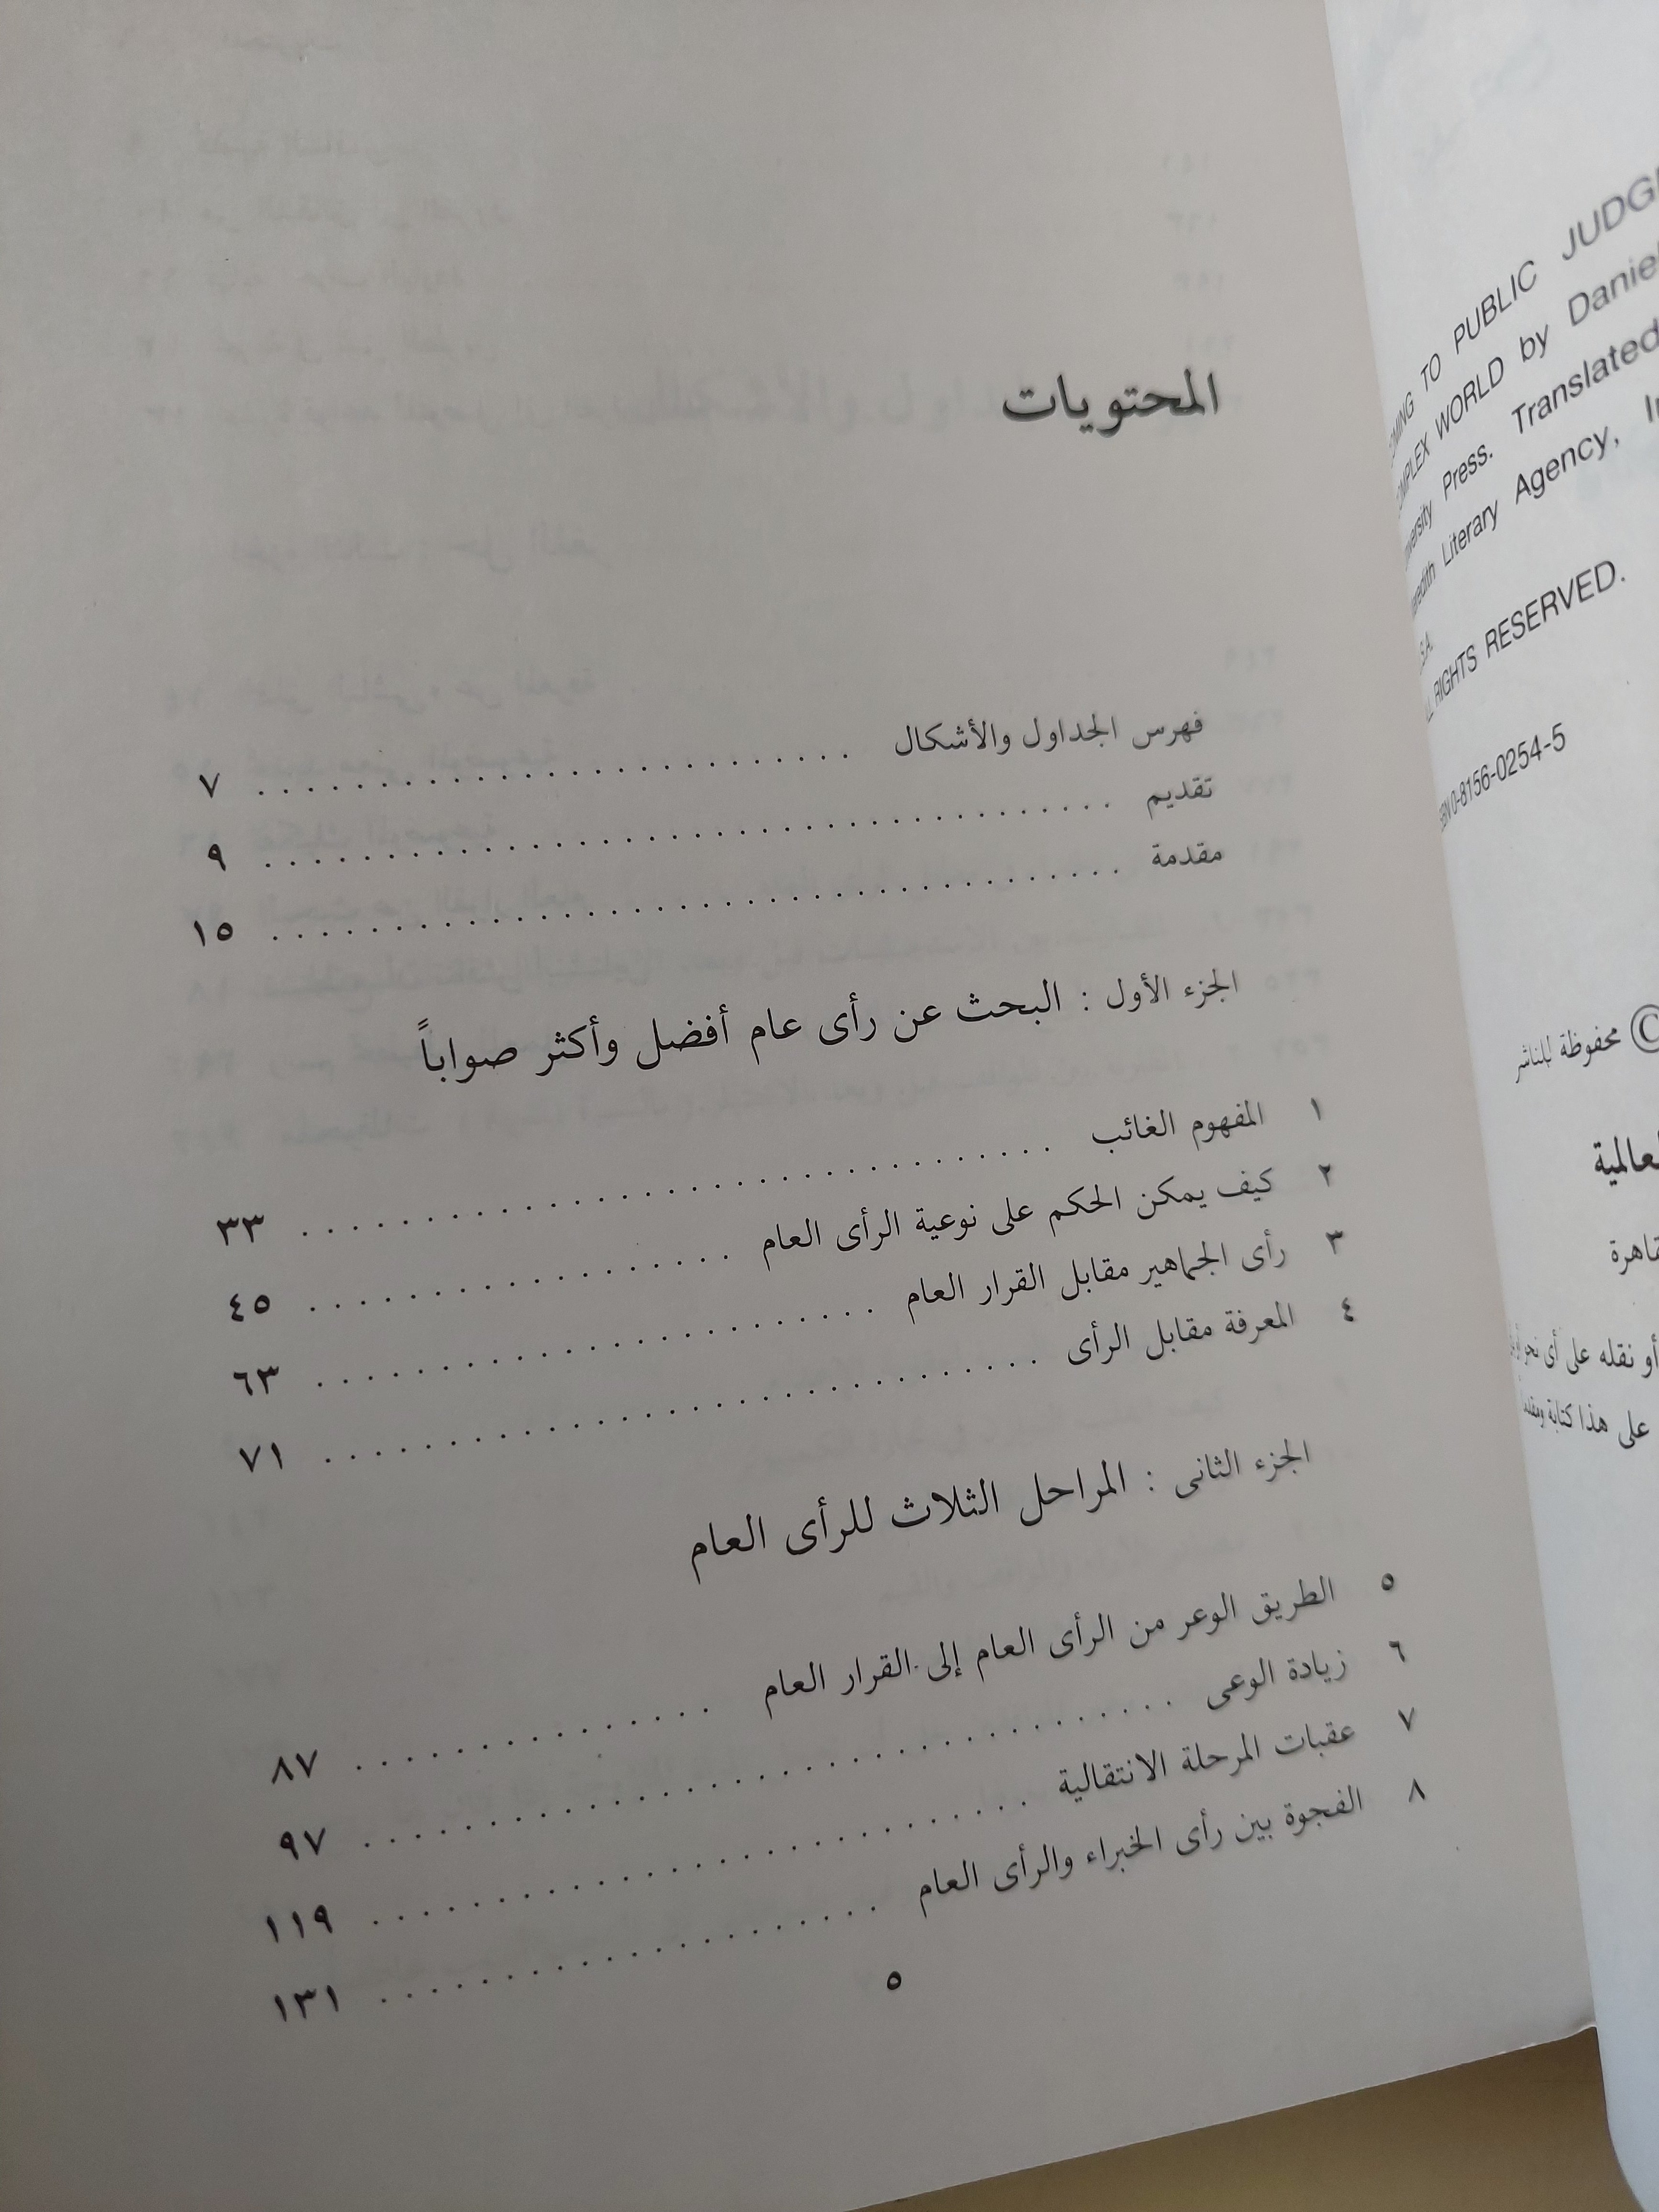 المحتويات
فهرس الجداول والأشكال ٧
تقديم ٩
مقدمة ١٥
الجزء الأول : البحث عن رأى عام أفضل وأكثر صواباً
١ المفهوم الغائب ٣٣
٢ كيف يمكن الحكم على نوعية الرأى العام ٤٥
٣ رأى الجماهير مقابل القرار العام ٦٣
٤ المعرفة مقابل الرأى ٧١
الجزء الثانى : المراحل الثلاث للرأى العام
٥ الطريق الوعر من الرأى العام إلى القرار العام ٨٧
٦ زيادة الوعى ٩٧
٧ عقبات المرحلة الانتقالية ١١٩
٨ الفجوة بين رأى الخبراء والرأى العام ١٣١
٥
TO PUBLIC
WORLD by
Press. Translated
Literary Agency,
RIGHTS RESERVED.
0-8156-0254-5
© محفوظة للناشر
أو نقله على أى نحو
على هذا كتابة